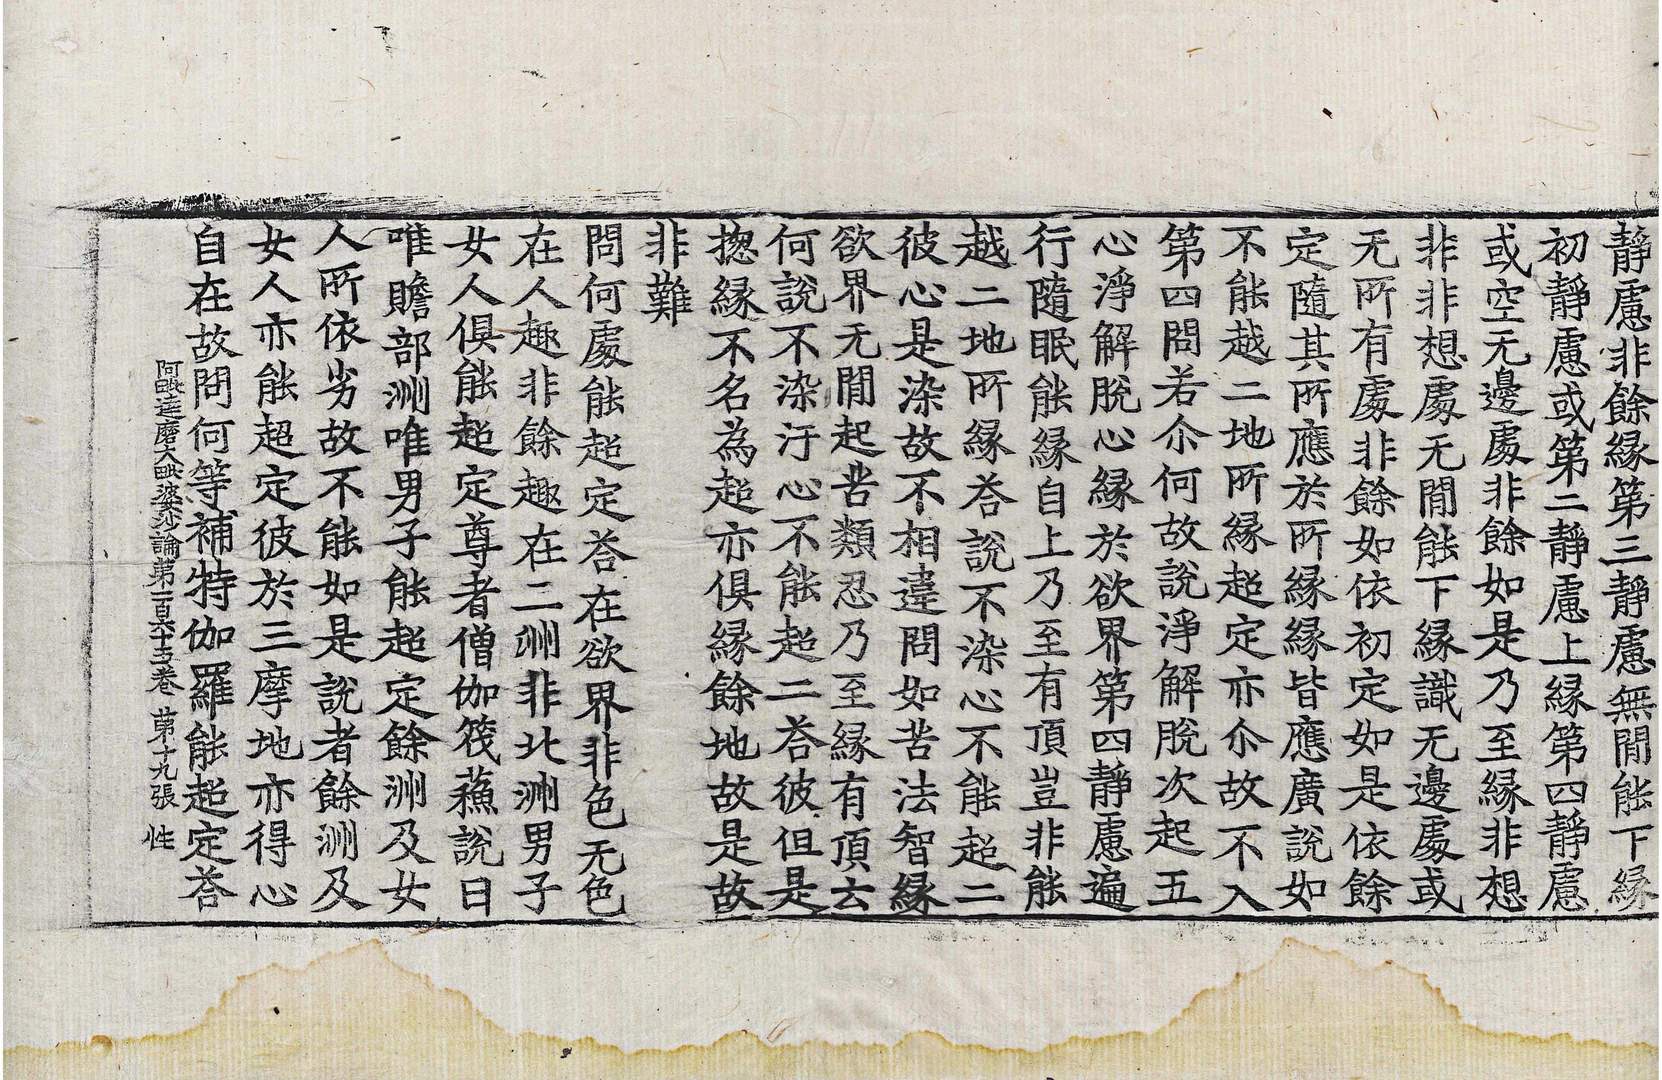 靜慮非餘緣第三靜慮無閒能下緣
初靜慮或第二靜慮上緣第四靜慮
或空无邊處非餘如是乃至緣非想
非非想處无閒能下緣識无邊處或
无所有處非餘如依初定如是依餘
定隨其所應於所緣緣皆應廣說如
不能越二地所緣超定亦尒故不入
第四問若尒何故說淨解脫次起五
心淨解脫心緣於欲界第四靜慮遍
行隨眠能緣自上乃至有頂豈非能
越二地所緣荅說不染心不能超二
彼心是染故不相違問如苦法智緣
欲界无閒起苦類忍乃至緣有頂去
何說不染汙心不能超二荅彼但是
揔緣不名為超亦俱緣餘地故是故
非難
問何處能起定荅在欲界非色无色
在人趣非餘趣在二洲非北洲男子
女人俱能超定尊者僧伽筏蘓說曰
唯贍部洲唯男子能超定餘洲及女
人所依劣故不能如是說者餘洲及
女人亦能超定彼於三摩地亦得心
自在故問何等補特伽羅能超定荅
阿毗達磨大毗婆沙論第一百六十五卷 第十九張 性